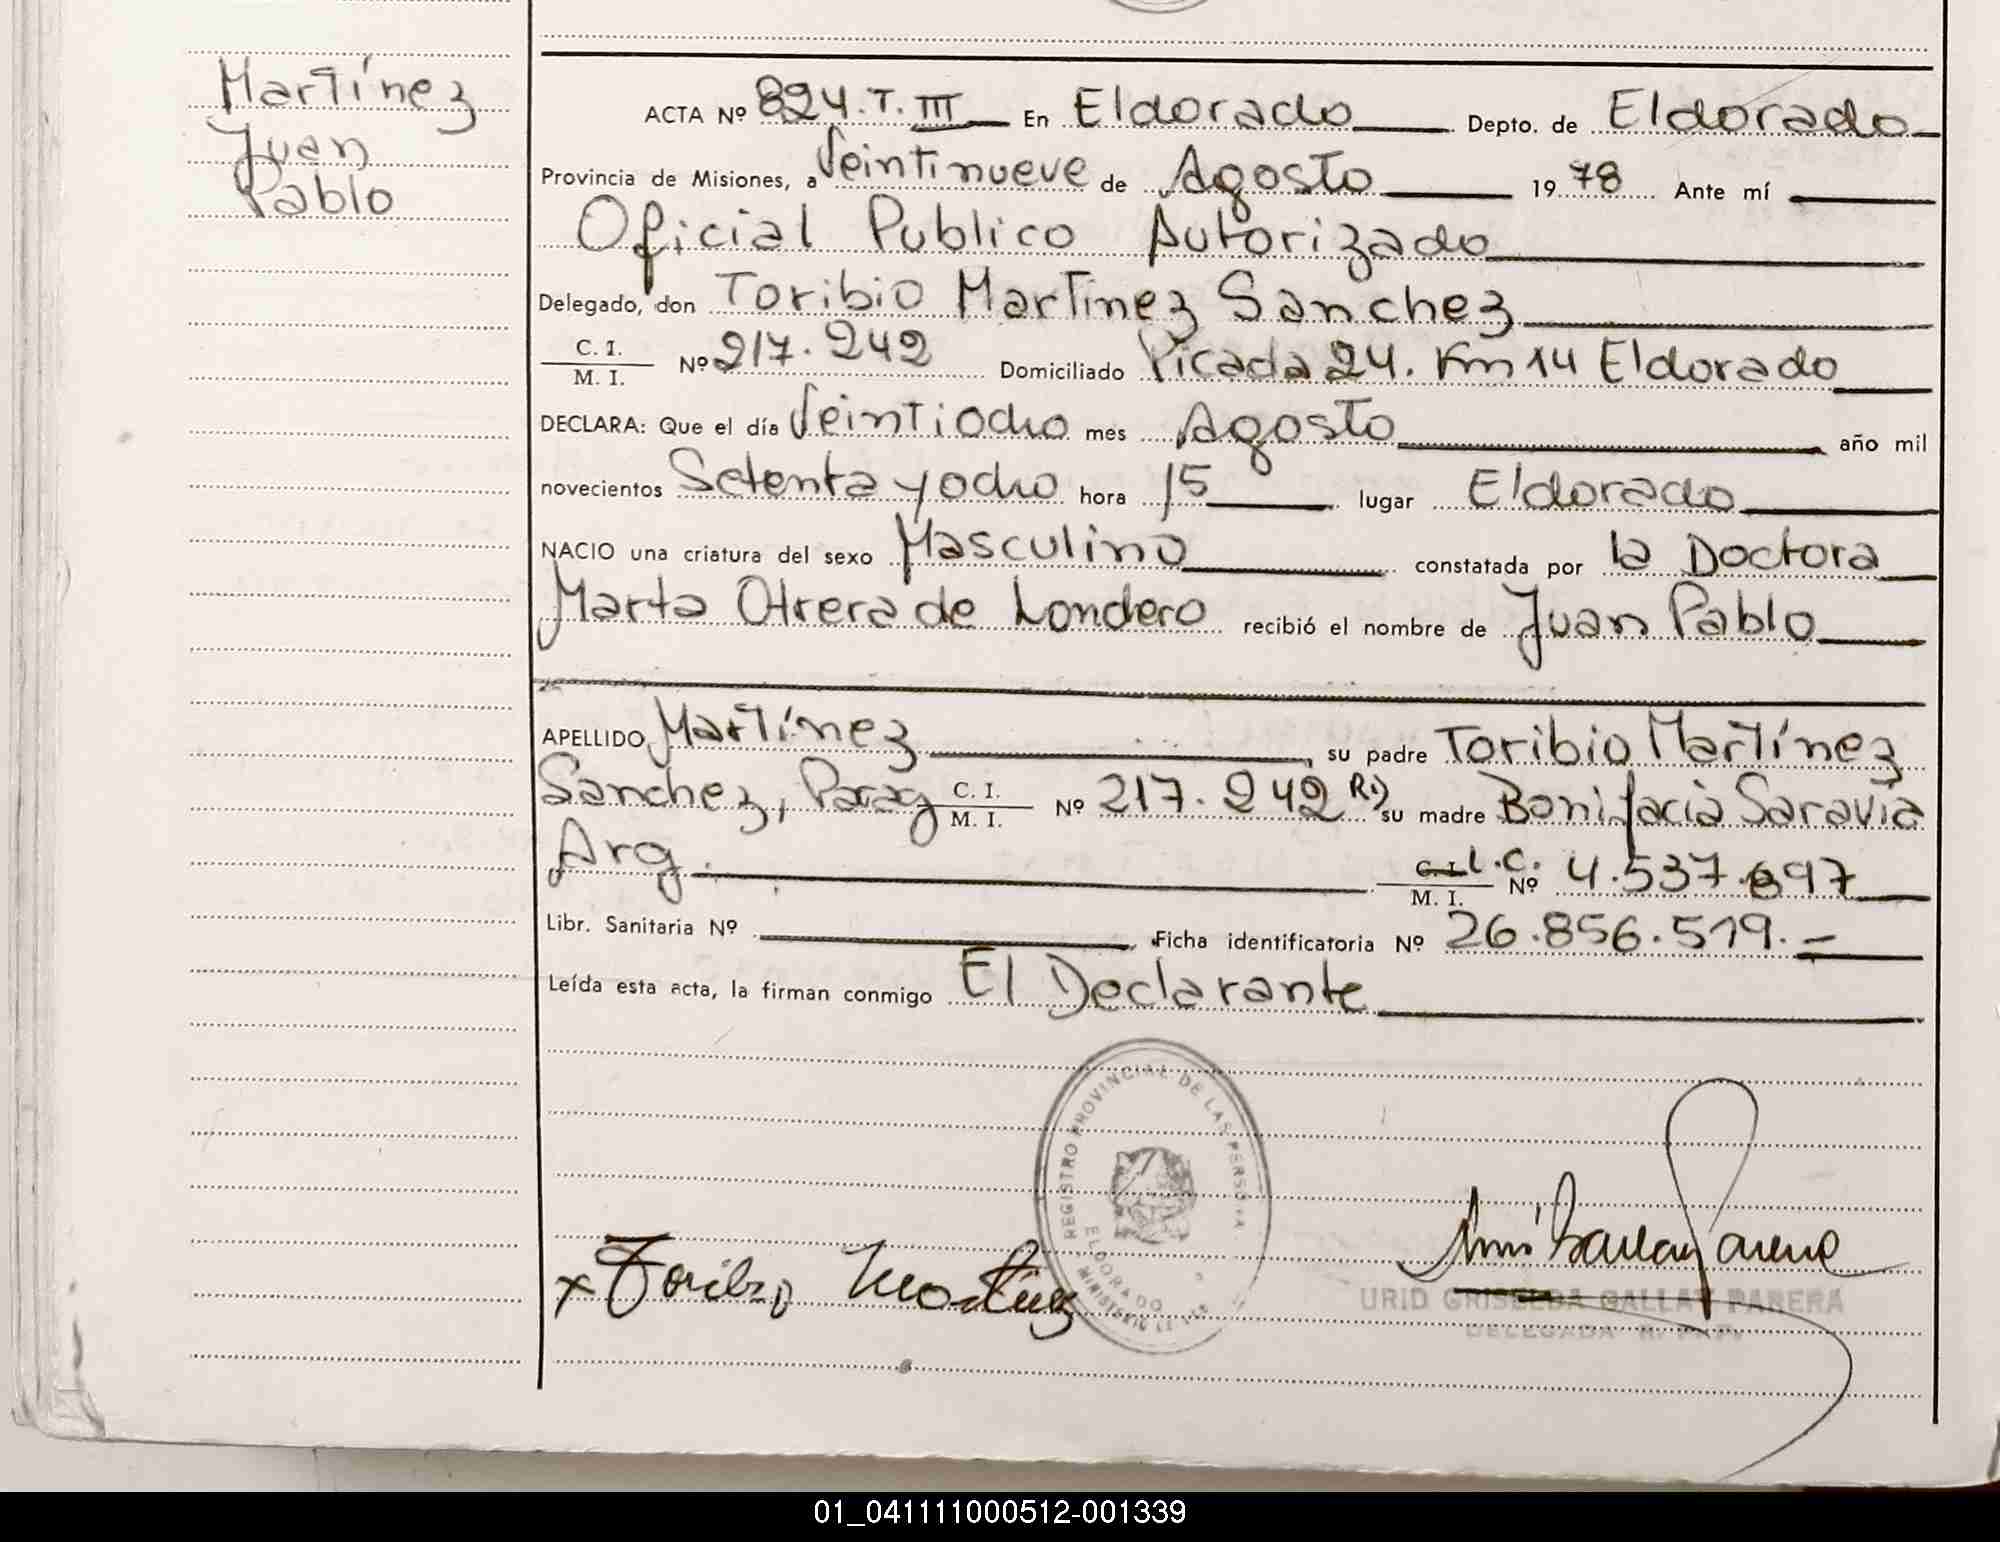 Martínez
Juan
Pablo
ACTA Nº 824.T.III En Eldorado Depto. de Eldorado
Provincia de Misiones, a Veintinueve de Agosto 19 78 Ante mí
Oficial Publico Autorizado
Delegado, don Toribio Martinez Sanchez
C. I.
M. I. Nº 217.242 Domiciliado Picada 24. Km 14 Eldorado
DECLARA: Que el día Veintiocho mes Agosto año mil
novecientos Setenta y ocho hora 15 lugar Eldorado
NACIO una criatura del sexo Masculino constatada por la Doctora
Marta Otrera de Londero recibió el nombre de Juan Pablo
APELLIDO Martínez, su padre Toribio Martínez
Sanchez, Parag C. I.
M. I. Nº 217.242 R.) su madre Bonifacia Saravia
Arg. C. I. L.C.
M. I. Nº 4.537.697
Libr. Sanitaria Nº , Ficha identificatoria Nº 26.856.519.-
Leída esta acta, la firman conmigo El Declarante
REGISTRO PROVINCIAL DE LAS PERSONAS
ELDORADO
x Toribio Martinez
GRISELDA GALLAY PARERA
DELEGADA
01_041111000512-001339